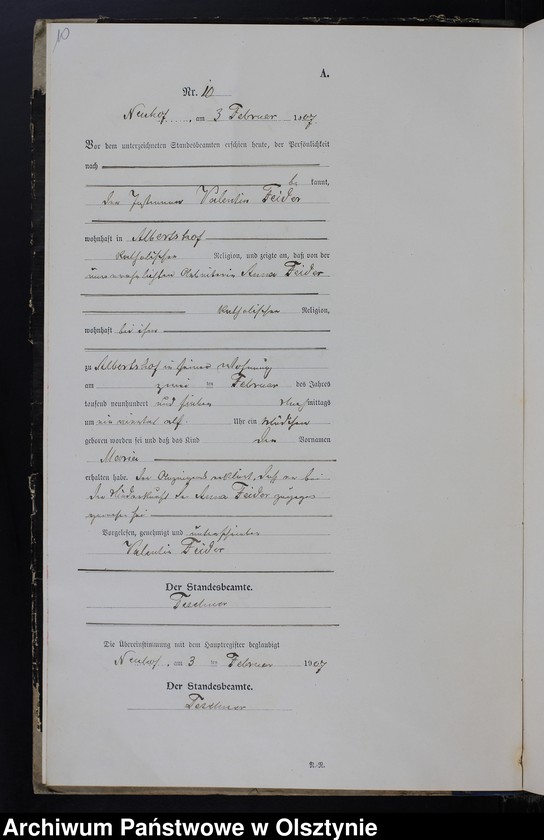 10
A.
Nr. 10
Neuhof, am 3 Februar 1907
Vor dem unterzeichneten Standesbeamten erschien heute, der Persönlichkeit
nach
be kannt,
der Instmann Valentin Feidor
wohnhaft in Albertshof
katholischer Religion, und zeigte an, daß von der
unverehelichten Arbeiterin Anna Feidor
katholischer Religion,
wohnhaft bei ihm
zu Albertshof in seiner Wohnung
am zwei ten Februar des Jahres
tausend neunhundert und sieben Nachmittags
um ein viertel elf Uhr ein Mädchen
geboren worden sei und daß das Kind den Vornamen
Maria
erhalten habe. Der Anzeigende erklärt, daß er bei
der Niederkunft der Anna Feidor zugegen
gewesen sei
Vorgelesen, genehmigt und unterschrieben
Valentin Feidor
Der Standesbeamte.
Die Übereinstimmung mit dem Hauptregister beglaubigt
Neuhof, am 3 ten Februar 1907
Der Standesbeamte.
Archiwum Państwowe w Olsztynie